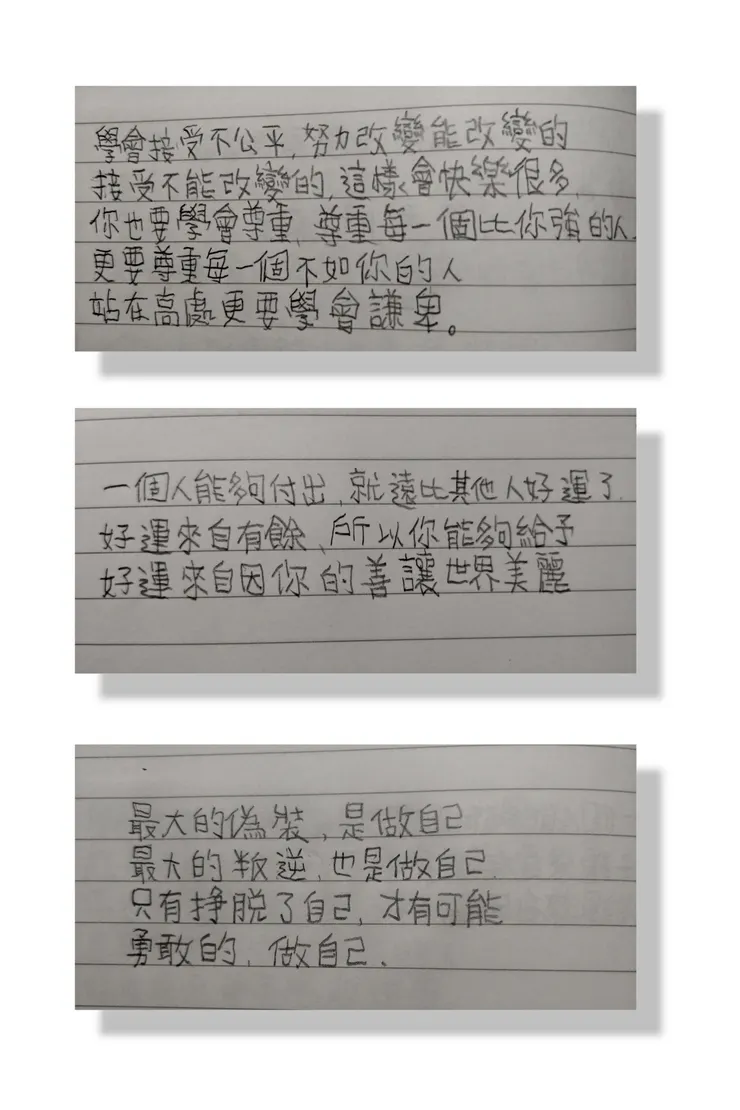 學會接受不公平,努力改變能改變的
接受不能改變的,這樣會快樂很多,
你也要學會尊重,尊重每一個比你強的人,
更要尊重每一個不如你的人
站在高處更要學會謙卑。
一個人能夠付出,就遠比其他人好運了,
好運來自有餘、所以你能夠給予
好運來自因你的善讓世界美麗
最大的偽裝,是做自己
最大的叛逆,也是做自己.
只有掙脫了自己,才有可能
勇敢的,做自己.